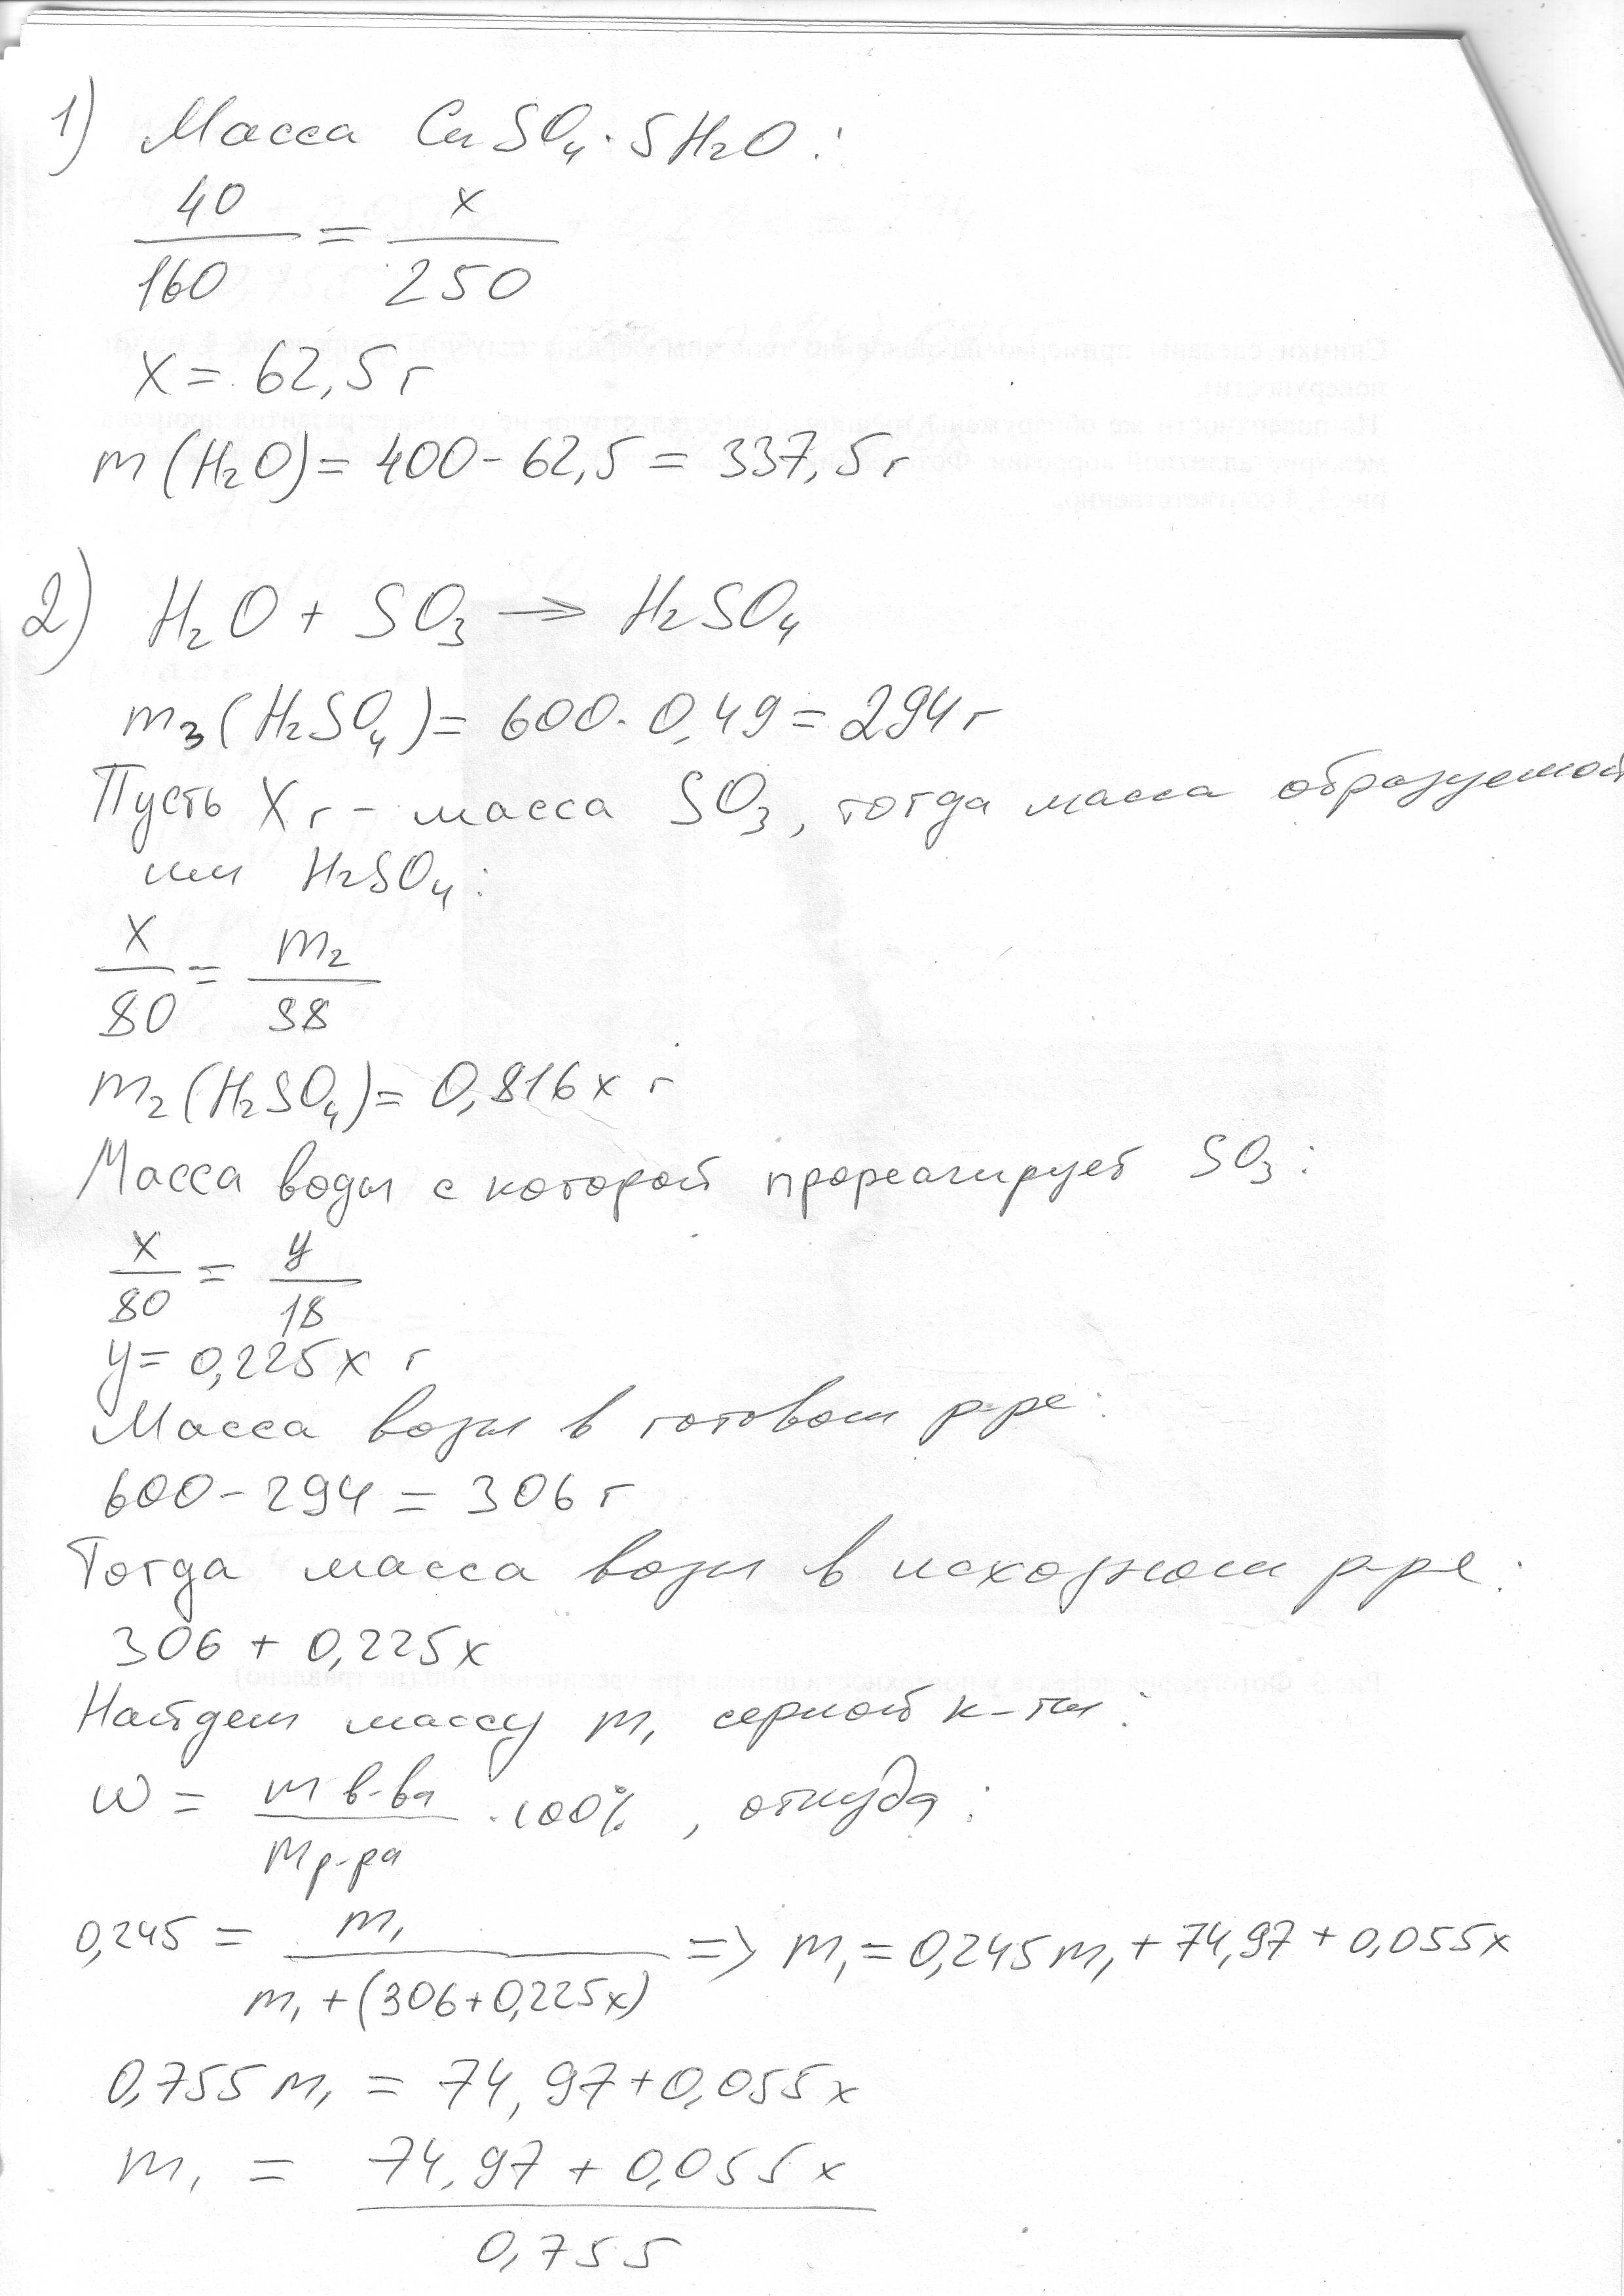 1) Масса CuSO₄·5H₂O:
40/160 = x/250
x = 62,5 г
m(H₂O) = 400 - 62,5 = 337,5 г
2) H₂O + SO₃ → H₂SO₄
m₃(H₂SO₄) = 600·0,49 = 294 г
Пусть X г - масса SO₃, тогда масса образуемой
им H₂SO₄:
x/80 = m₂/98
m₂(H₂SO₄) = 0,816x г
Масса воды с которой прореагирует SO₃:
x/80 = y/18
y = 0,225x г
Масса воды в готовом р-ре:
600 - 294 = 306 г
Тогда масса воды в исходном р-ре:
306 + 0,225x
Найдем массу m₁ серной к-ты:
w = m в-ва/m р-ра ·100%, откуда:
0,245 = m₁/(m₁ + (306 + 0,225x)) => m₁ = 0,245m₁ + 74,97 + 0,055x
0,755m₁ = 74,97 + 0,055x
m₁ = (74,97 + 0,055x)/0,755